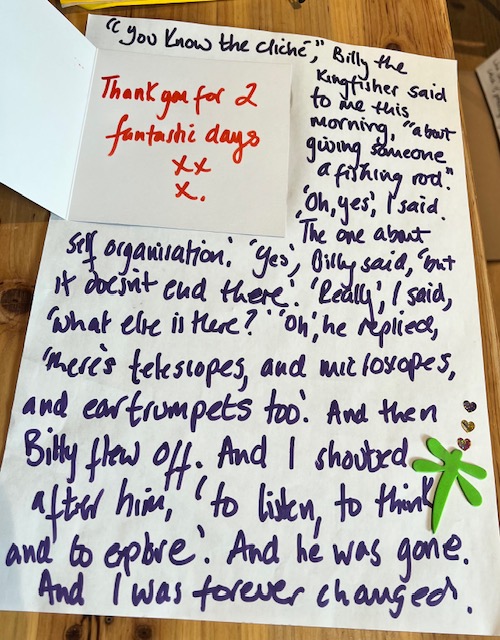 "You know the cliché," Billy the
Kingfisher said
to me this
morning, "about
giving someone
a fishing rod."
'Oh, yes', I said.
'The one about
self organisation.' 'Yes', Billy said, 'but
it doesn't end there'. 'Really', I said,
'what else is there?' 'Oh', he replied,
'there's telescopes, and microscopes,
and ear trumpets too.' And then
Billy flew off. And I shouted
after him, 'to listen, to think
and to explore'. And he was gone.
And I was forever changed.
Thank you for 2
fantastic days
xx
x.